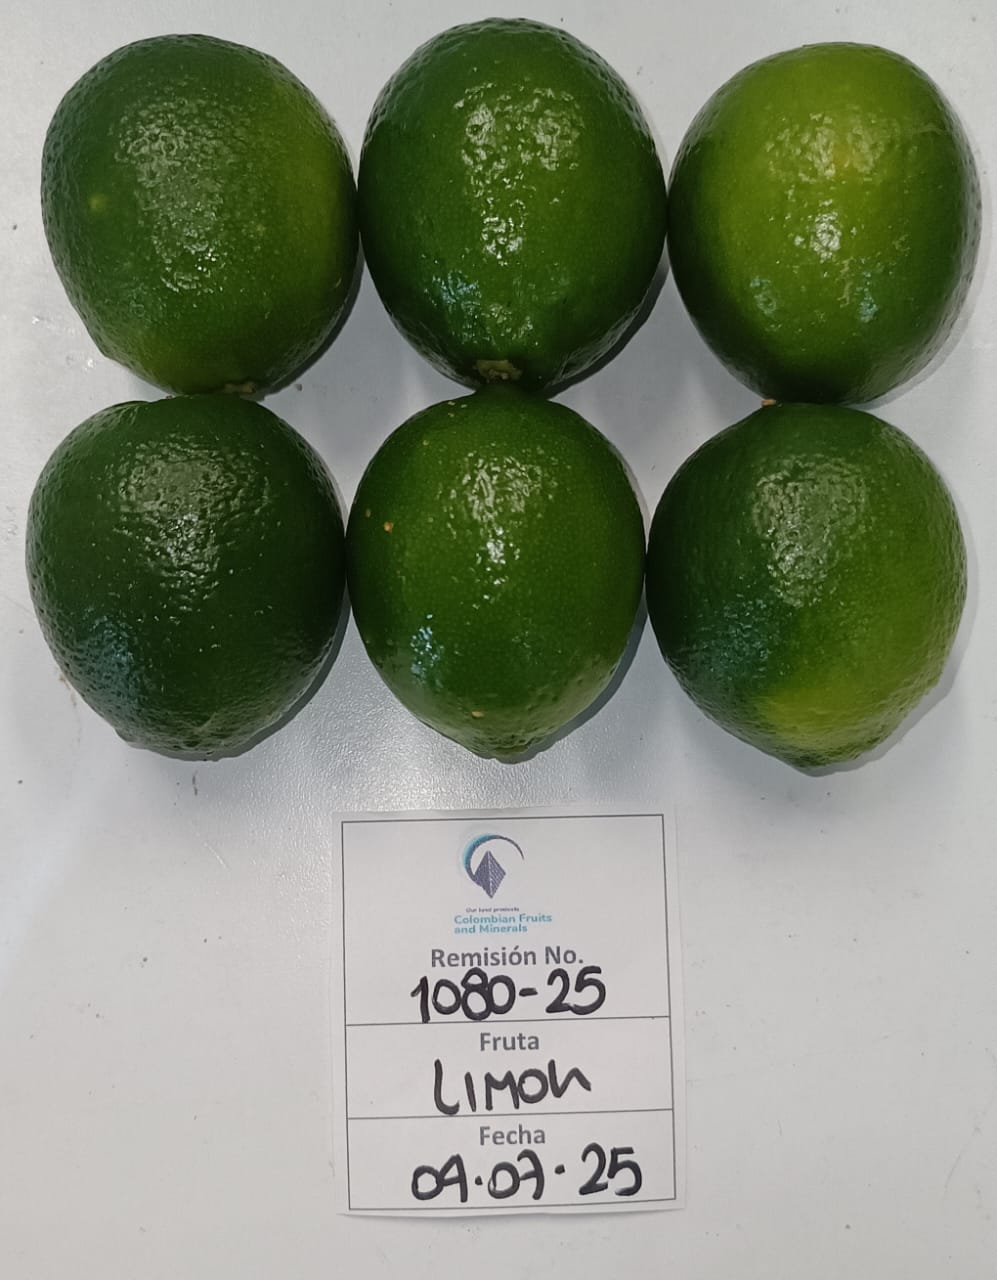 Our best products
Colombian Fruits
and Minerals
Remisión No.
1080-25
Fruta
LIMON
Fecha
09.07.25